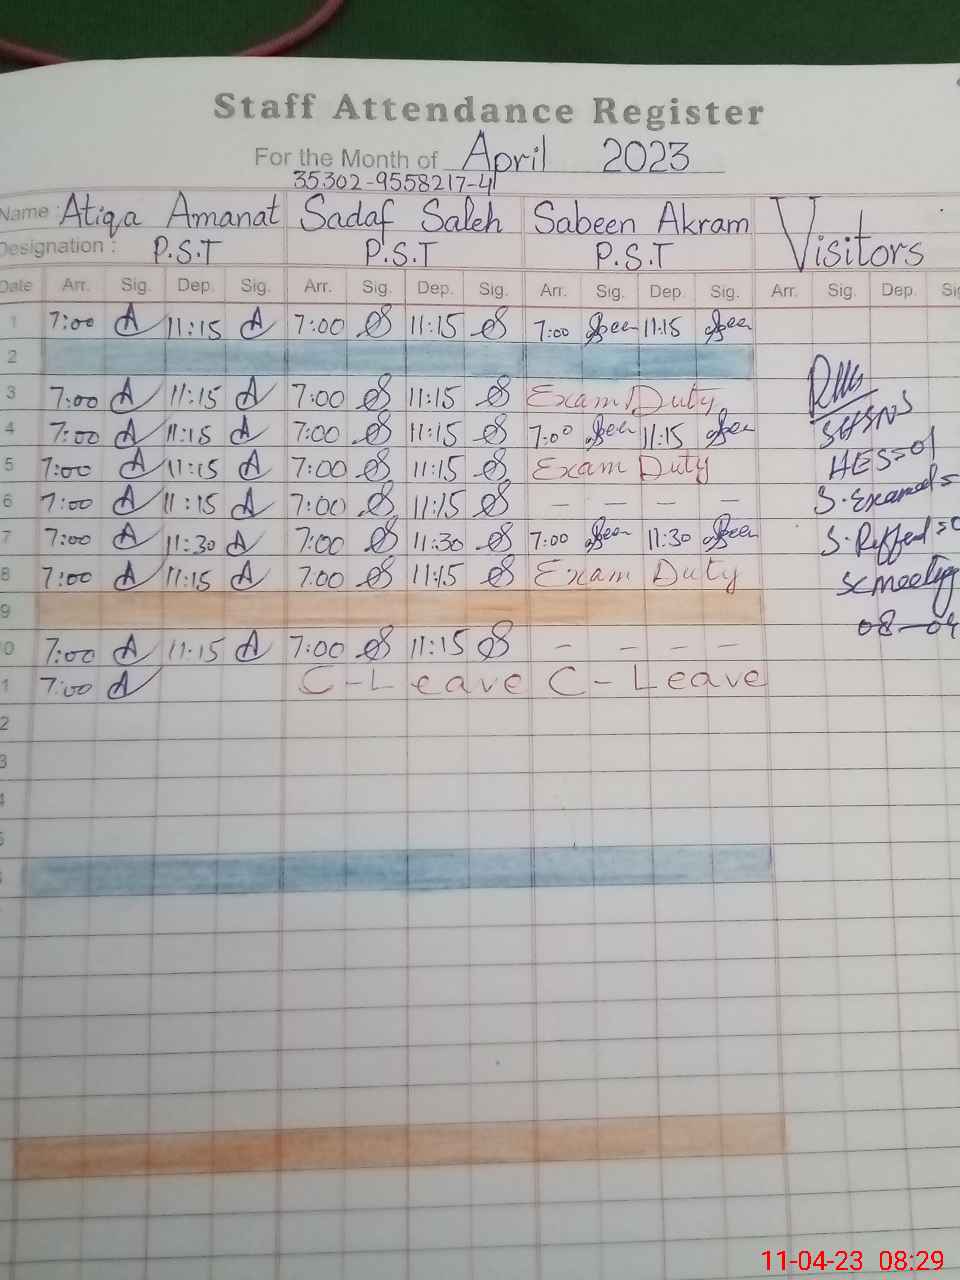 Staff Attendance Register
For the Month of April 2023
35302-9558217-4
Name : Atiqa Amanat Sadaf Saleh Sabeen Akram Visitors
Designation : P.S.T P.S.T P.S.T
Date Arr. Sig. Dep. Sig. Arr. Sig. Dep. Sig. Arr. Sig. Dep. Sig. Arr. Sig. Dep. Sig
1 7:00 A 11:15 A 7:00 S 11:15 S 7:00 11:15
2
3 7:00 A 11:15 A 7:00 S 11:15 S Exam Duty
4 7:00 A 11:15 A 7:00 S 11:15 S 7:00 11:15
5 7:00 A 11:15 A 7:00 S 11:15 S Exam Duty HES=01
6 7:00 A 11:15 A 7:00 S 11:15 S – – – –
7 7:00 A 11:30 A 7:00 S 11:30 S 7:00 11:30
8 7:00 A 11:15 A 7:00 S 11:15 S Exam Duty
9 08-04
0 7:00 A 11:15 A 7:00 S 11:15 S – – – –
1 7:00 A C-Leave C-Leave
2
3
4
11-04-23 08:29